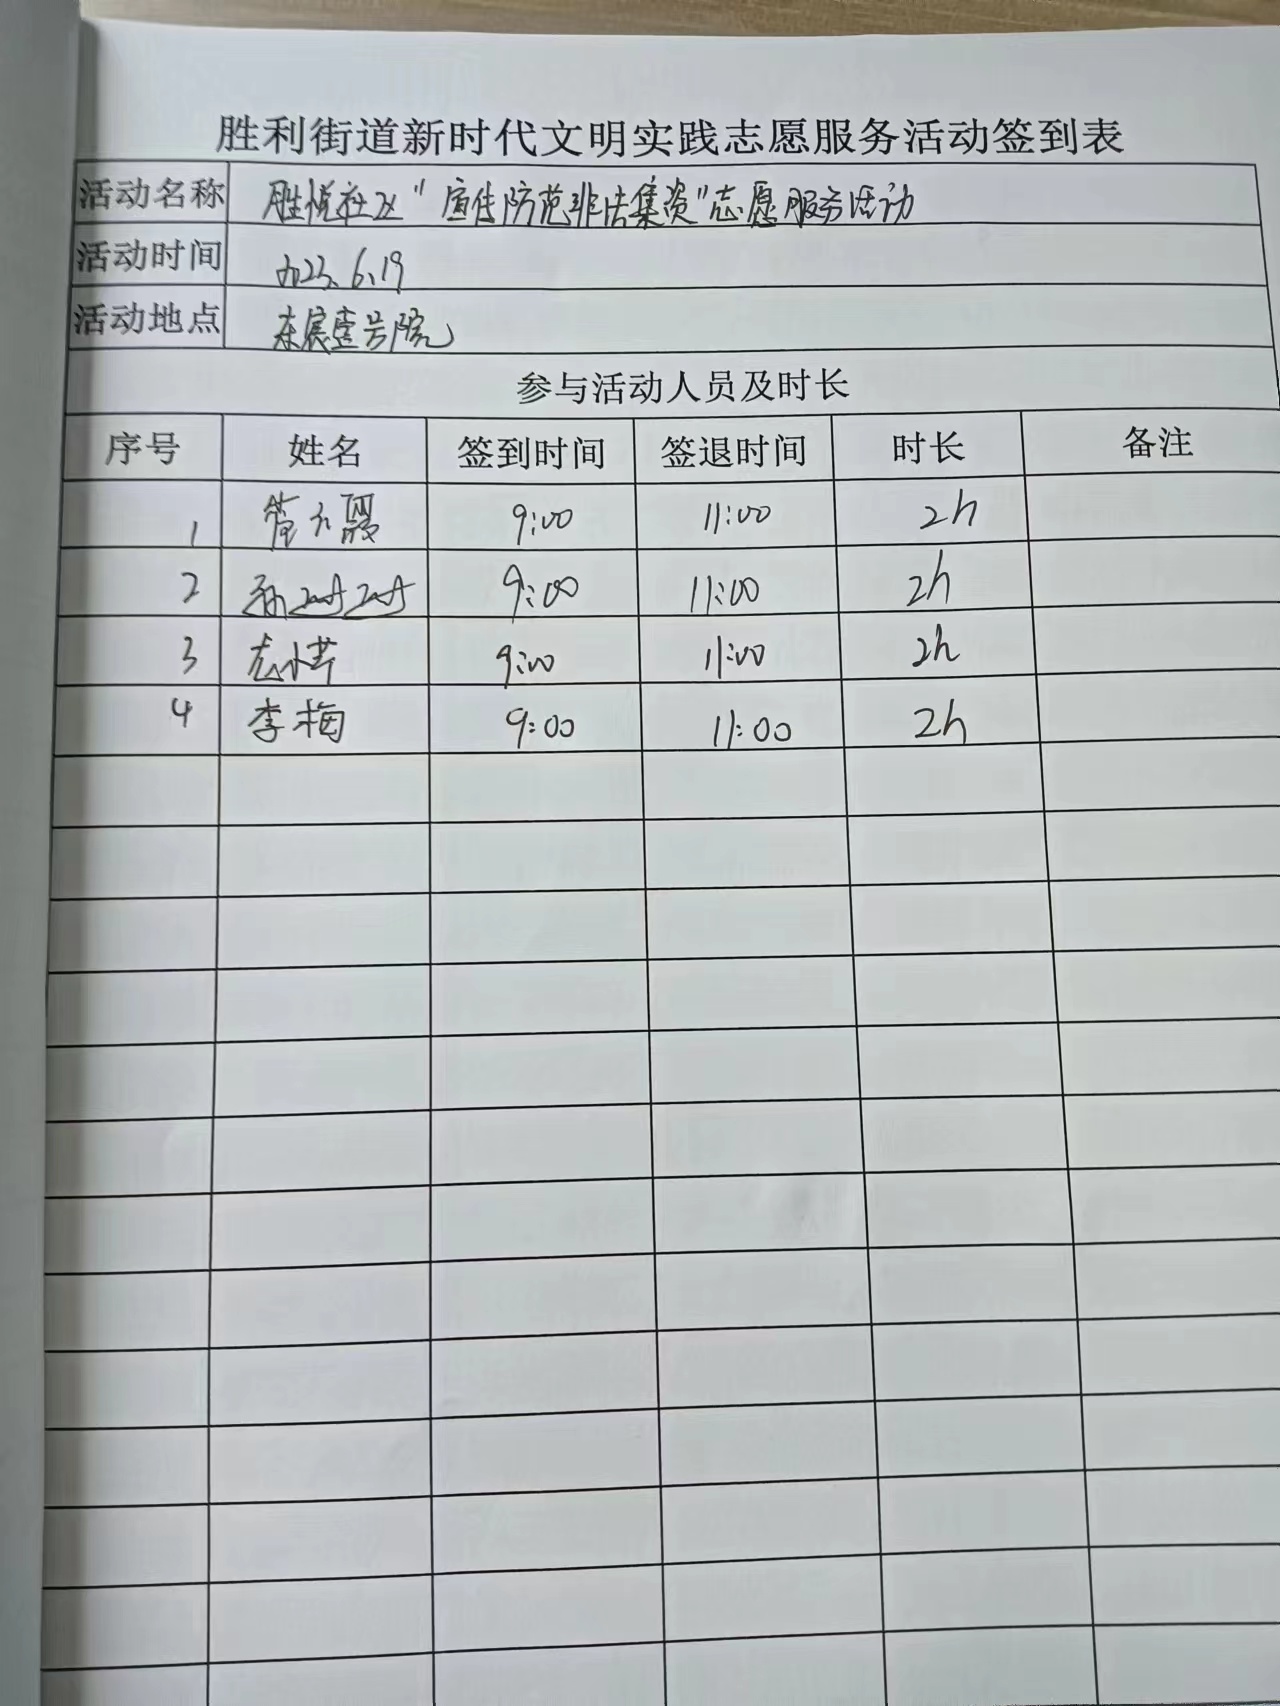 胜利街道新时代文明实践志愿服务活动签到表
活动名称 胜悦社区“宣传防范非法集资”志愿服务活动
活动时间 2023.6.19
活动地点 东宸壹号院
参与活动人员及时长
序号 姓名 签到时间 签退时间 时长 备注
1 9:00 11:00 2h
2 9:00 11:00 2h
3 9:00 11:00 2h
4 李梅 9:00 11:00 2h